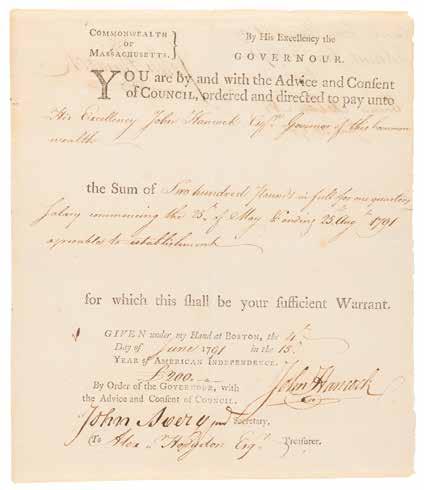 COMMONWEALTH
OF
MASSACHUSETTS.
By His Excellency the
GOVERNOUR.
YOU are by and with the Advice and Consent
of COUNCIL, ordered and directed to pay unto
His Excellency John Hancock Esqr. Governor of this Common
wealth
the Sum of Two hundred Pounds in full for one quarters
Salary commencing the 25th of May & ending 25 Augt. 1791
agreeable to establishment
for which this shall be your sufficient Warrant.
GIVEN under my Hand at BOSTON, the 4th
Day of June 1791 in the 15th
YEAR of AMERICAN INDEPENDENCE.
£200.
By Order of the GOVERNOR, with
the Advice and Consent of COUNCIL.
John Hancock
John Avery junr Secretary.
To Alexr Hodgdon Esqr Treasurer.